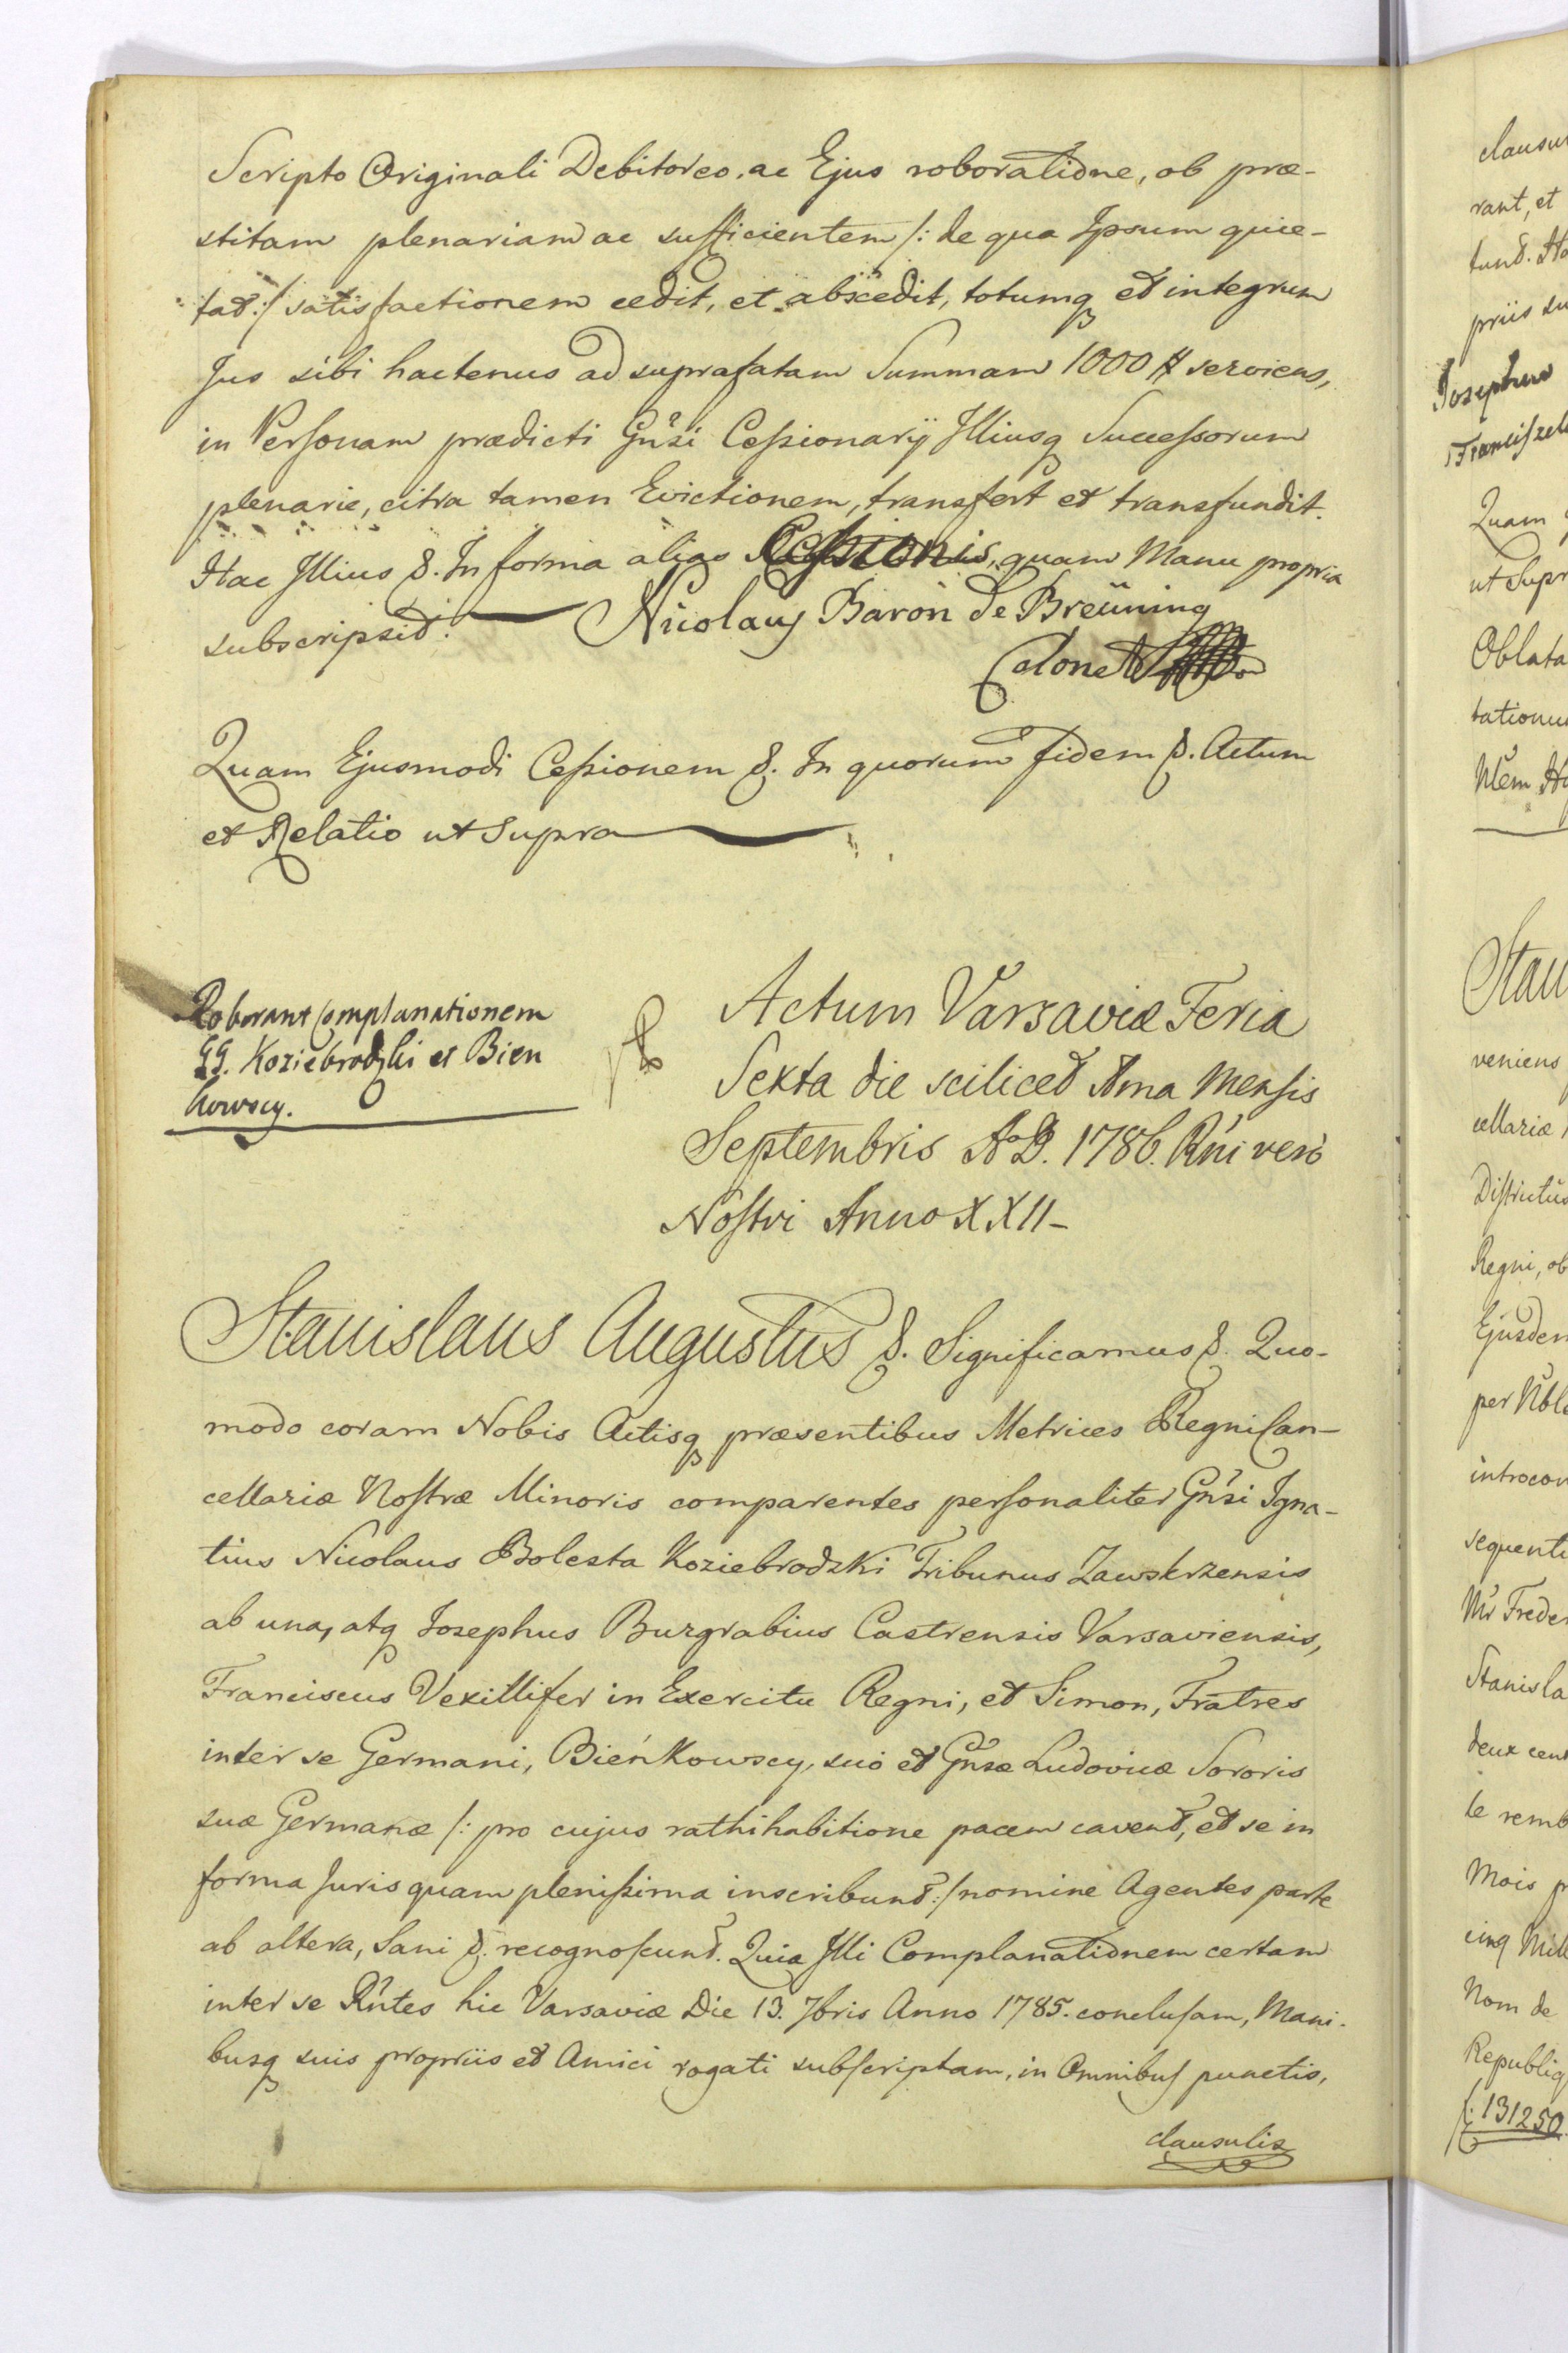 Scripto Originali Debitoreo, ac Ejus roboratione, ob præ-
stitam plenariam ac sufficientem /: de qua Ipsum quie-
tat :/ satisfactionem cedit, et abscedit, totumq et integrum
Jus sibi hactenus ad suprafatam Summam 1000 # serviens,
in Personam prædicti Gnsi Cessionarij Illiusq Successorum
plenarie, citra tamen Evictionem, transfert et transfundit.
Hac Illius &. In forma alias Cessionis, quam Manu propria
subscripsit. Nicolaus Baron de Breüning
Colonel
Quam Ejusmodi Cessionem &. In quorum fidem &. Actum
et Relatio ut Supra
Roborant Complanationem
GG. Koziebrodzki et Bien
kowscy.
Actum Varsaviæ Feria
Sexta die scilicet Ima Mensis
Septembris AoD. 1786. Rni verò
Nostri Anno XXII
Stanislaus Augustus &. Significamus &. Quo-
modo coram Nobis Actisq præsentibus Metrices Regni Can-
cellariæ Nostræ Minoris comparentes personaliter Gnsi Igna-
tius Nicolaus Bolesta Koziebrodzki Tribunus Zawskrzensis
ab una, atq Josephus Burgrabius Castrensis Varsaviensis,
Franciscus Vexillifer in Exercitu Regni, et Simon, Fratres
inter se Germani, Bieńkowscy, suo et Gnsæ Ludovicæ Sororis
suæ Germanæ /: pro cujus rathihabitione pacem cavent, et se in
forma Juris quam plenissima inscribunt :/ nomine Agentes parte
ab altera, Sani &. recognoscunt. Quia Illi Complanationem certam
inter se Rntes hic Varsaviæ Die 13. 7bris Anno 1785. conclusam, Mani-
busq suis propriis et Amici rogati subscriptam, in Omnibus punctis,
clausulis
clausu
rant, et
tunt. Ha
priis su
Josephus
Quam
ut Supr
Oblata
tationu
Stan
veniens
cellariæ
Districtus
Regni, ob
Ejusdem
per
introcon
sequenti
Mr Freder
Stanisla
deux cent
le remb
Mois p
cinq Mill
Nom de
Republiq
/: 131250